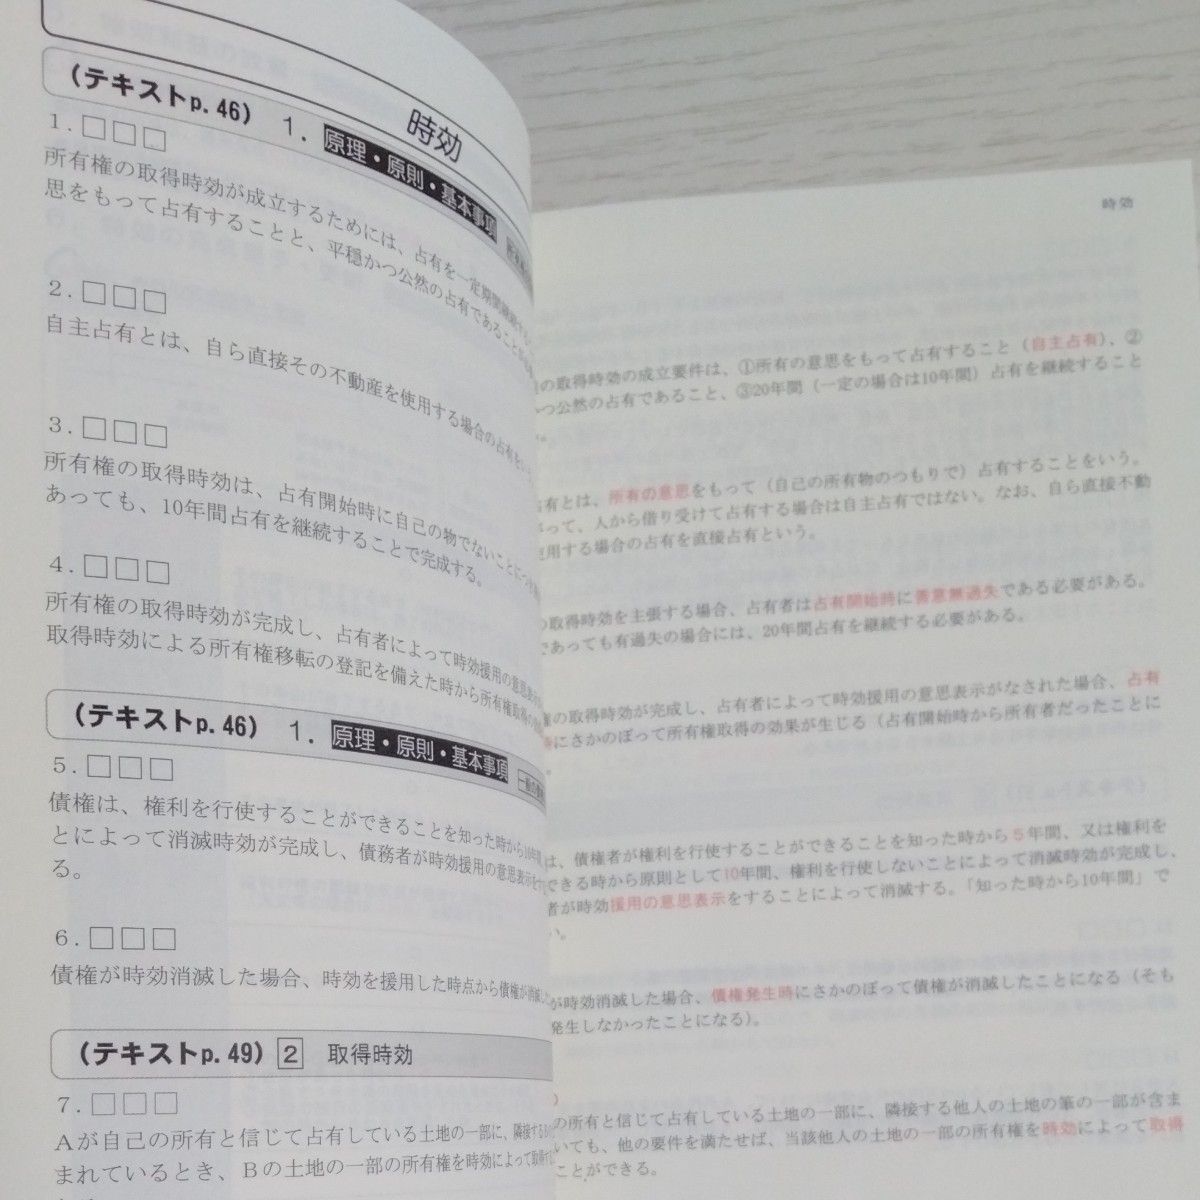 時効
(テキストp.46) 1. 原理・原則・基本事項
1.□□□
所有権の取得時効が成立するためには、占有を一定期間継続する
思をもって占有することと、平穏かつ公然の占有であること
2.□□□
自主占有とは、自ら直接その不動産を使用する場合の占有をいう
3.□□□
所有権の取得時効は、占有開始時に自己の物でないことにつき
あっても、10年間占有を継続することで完成する。
4.□□□
所有権の取得時効が完成し、占有者によって時効援用の意思表示
取得時効による所有権移転の登記を備えた時から所有権取得の
(テキストp.46) 1. 原理・原則・基本事項
5.□□□
債権は、権利を行使することができることを知った時から10年間
とによって消滅時効が完成し、債務者が時効援用の意思表示をす
る。
6.□□□
債権が時効消滅した場合、時効を援用した時点から債権が消滅した
(テキストp.49) 2 取得時効
7.□□□
Aが自己の所有と信じて占有している土地の一部に、隣接する
まれているとき、Bの土地の一部の所有権を時効によって取得す
時効
の取得時効の成立要件は、①所有の意思をもって占有すること(自主占有)、②
つ公然の占有であること、③20年間(一定の場合は10年間)占有を継続すること
。
占有とは、所有の意思をもって(自己の所有物のつもりで)占有することをいう。
って、人から借り受けて占有する場合は自主占有ではない。なお、自ら直接不動
使用する場合の占有を直接占有という。
の取得時効を主張する場合、占有者は占有開始時に善意無過失である必要がある。
であっても有過失の場合には、20年間占有を継続する必要がある。
権の取得時効が完成し、占有者によって時効援用の意思表示がなされた場合、占有
時にさかのぼって所有権取得の効果が生じる(占有開始時から所有者だったことに
。
は、債権者が権利を行使することができることを知った時から5年間、又は権利を
できる時から原則として10年間、権利を行使しないことによって消滅時効が完成し、
者が時効援用の意思表示をすることによって消滅する。「知った時から10年間」で
い。
が時効消滅した場合、債権発生時にさかのぼって債権が消滅したことになる(そも
発生しなかったことになる)。
の所有と信じて占有している土地の一部に、隣接する他人の土地の筆の一部が含ま
いても、他の要件を満たせば、当該他人の土地の一部の所有権を時効によって取得
ことができる。